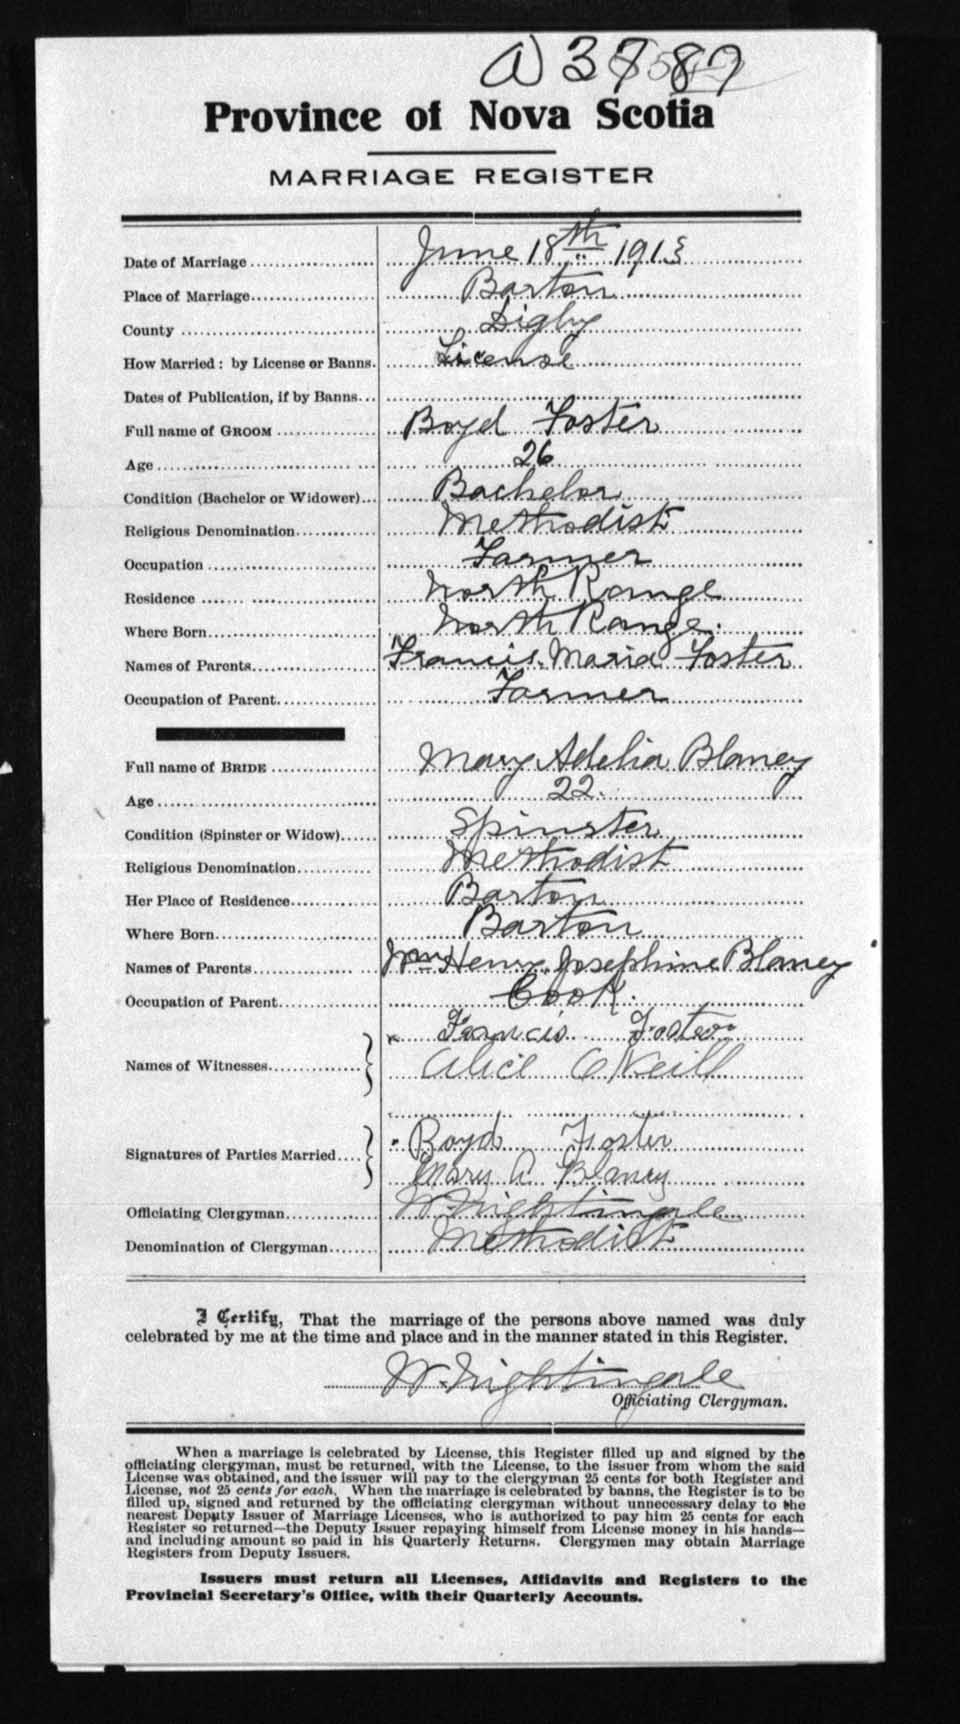 A) 3787
Province of Nova Scotia
MARRIAGE REGISTER
Date of Marriage June 18th 1913
Place of Marriage Barton
County Digby
How Married: by License or Banns. License
Dates of Publication, if by Banns
Full name of GROOM Boyd Foster
Age 26
Condition (Bachelor or Widower) Bachelor
Religious Denomination Methodist
Occupation Farmer
Residence North Range
Where Born North Range.
Names of Parents Francis. Maria Foster
Occupation of Parent Farmer
Full name of BRIDE Mary Adelia Blaney
Age 22.
Condition (Spinster or Widow) Spinster
Religious Denomination Methodist
Her Place of Residence Barton
Where Born Barton
Names of Parents Wm Henry Josephine Blaney
Occupation of Parent Cook.
x Francis Foster
Names of Witnesses Alice O'Neill
Boyd Foster
Signatures of Parties Married
Mary A Blaney
Officiating Clergyman W. Nightingale
Denomination of Clergyman Methodist
I Certify, That the marriage of the persons above named was duly
celebrated by me at the time and place and in the manner stated in this Register.
W. Nightingale
Officiating Clergyman.
When a marriage is celebrated by License, this Register filled up and signed by the
officiating clergyman, must be returned, with the License, to the issuer from whom the said
License was obtained, and the issuer will pay to the clergyman 25 cents for both Register and
License, not 25 cents for each. When the marriage is celebrated by banns, the Register is to be
filled up, signed and returned by the officiating clergyman without unnecessary delay to the
nearest Deputy Issuer of Marriage Licenses, who is authorized to pay him 25 cents for each
Register so returned—the Deputy Issuer repaying himself from License money in his hands—
and including amount so paid in his Quarterly Returns. Clergymen may obtain Marriage
Registers from Deputy Issuers.
Issuers must return all Licenses, Affidavits and Registers to the
Provincial Secretary's Office, with their Quarterly Accounts.